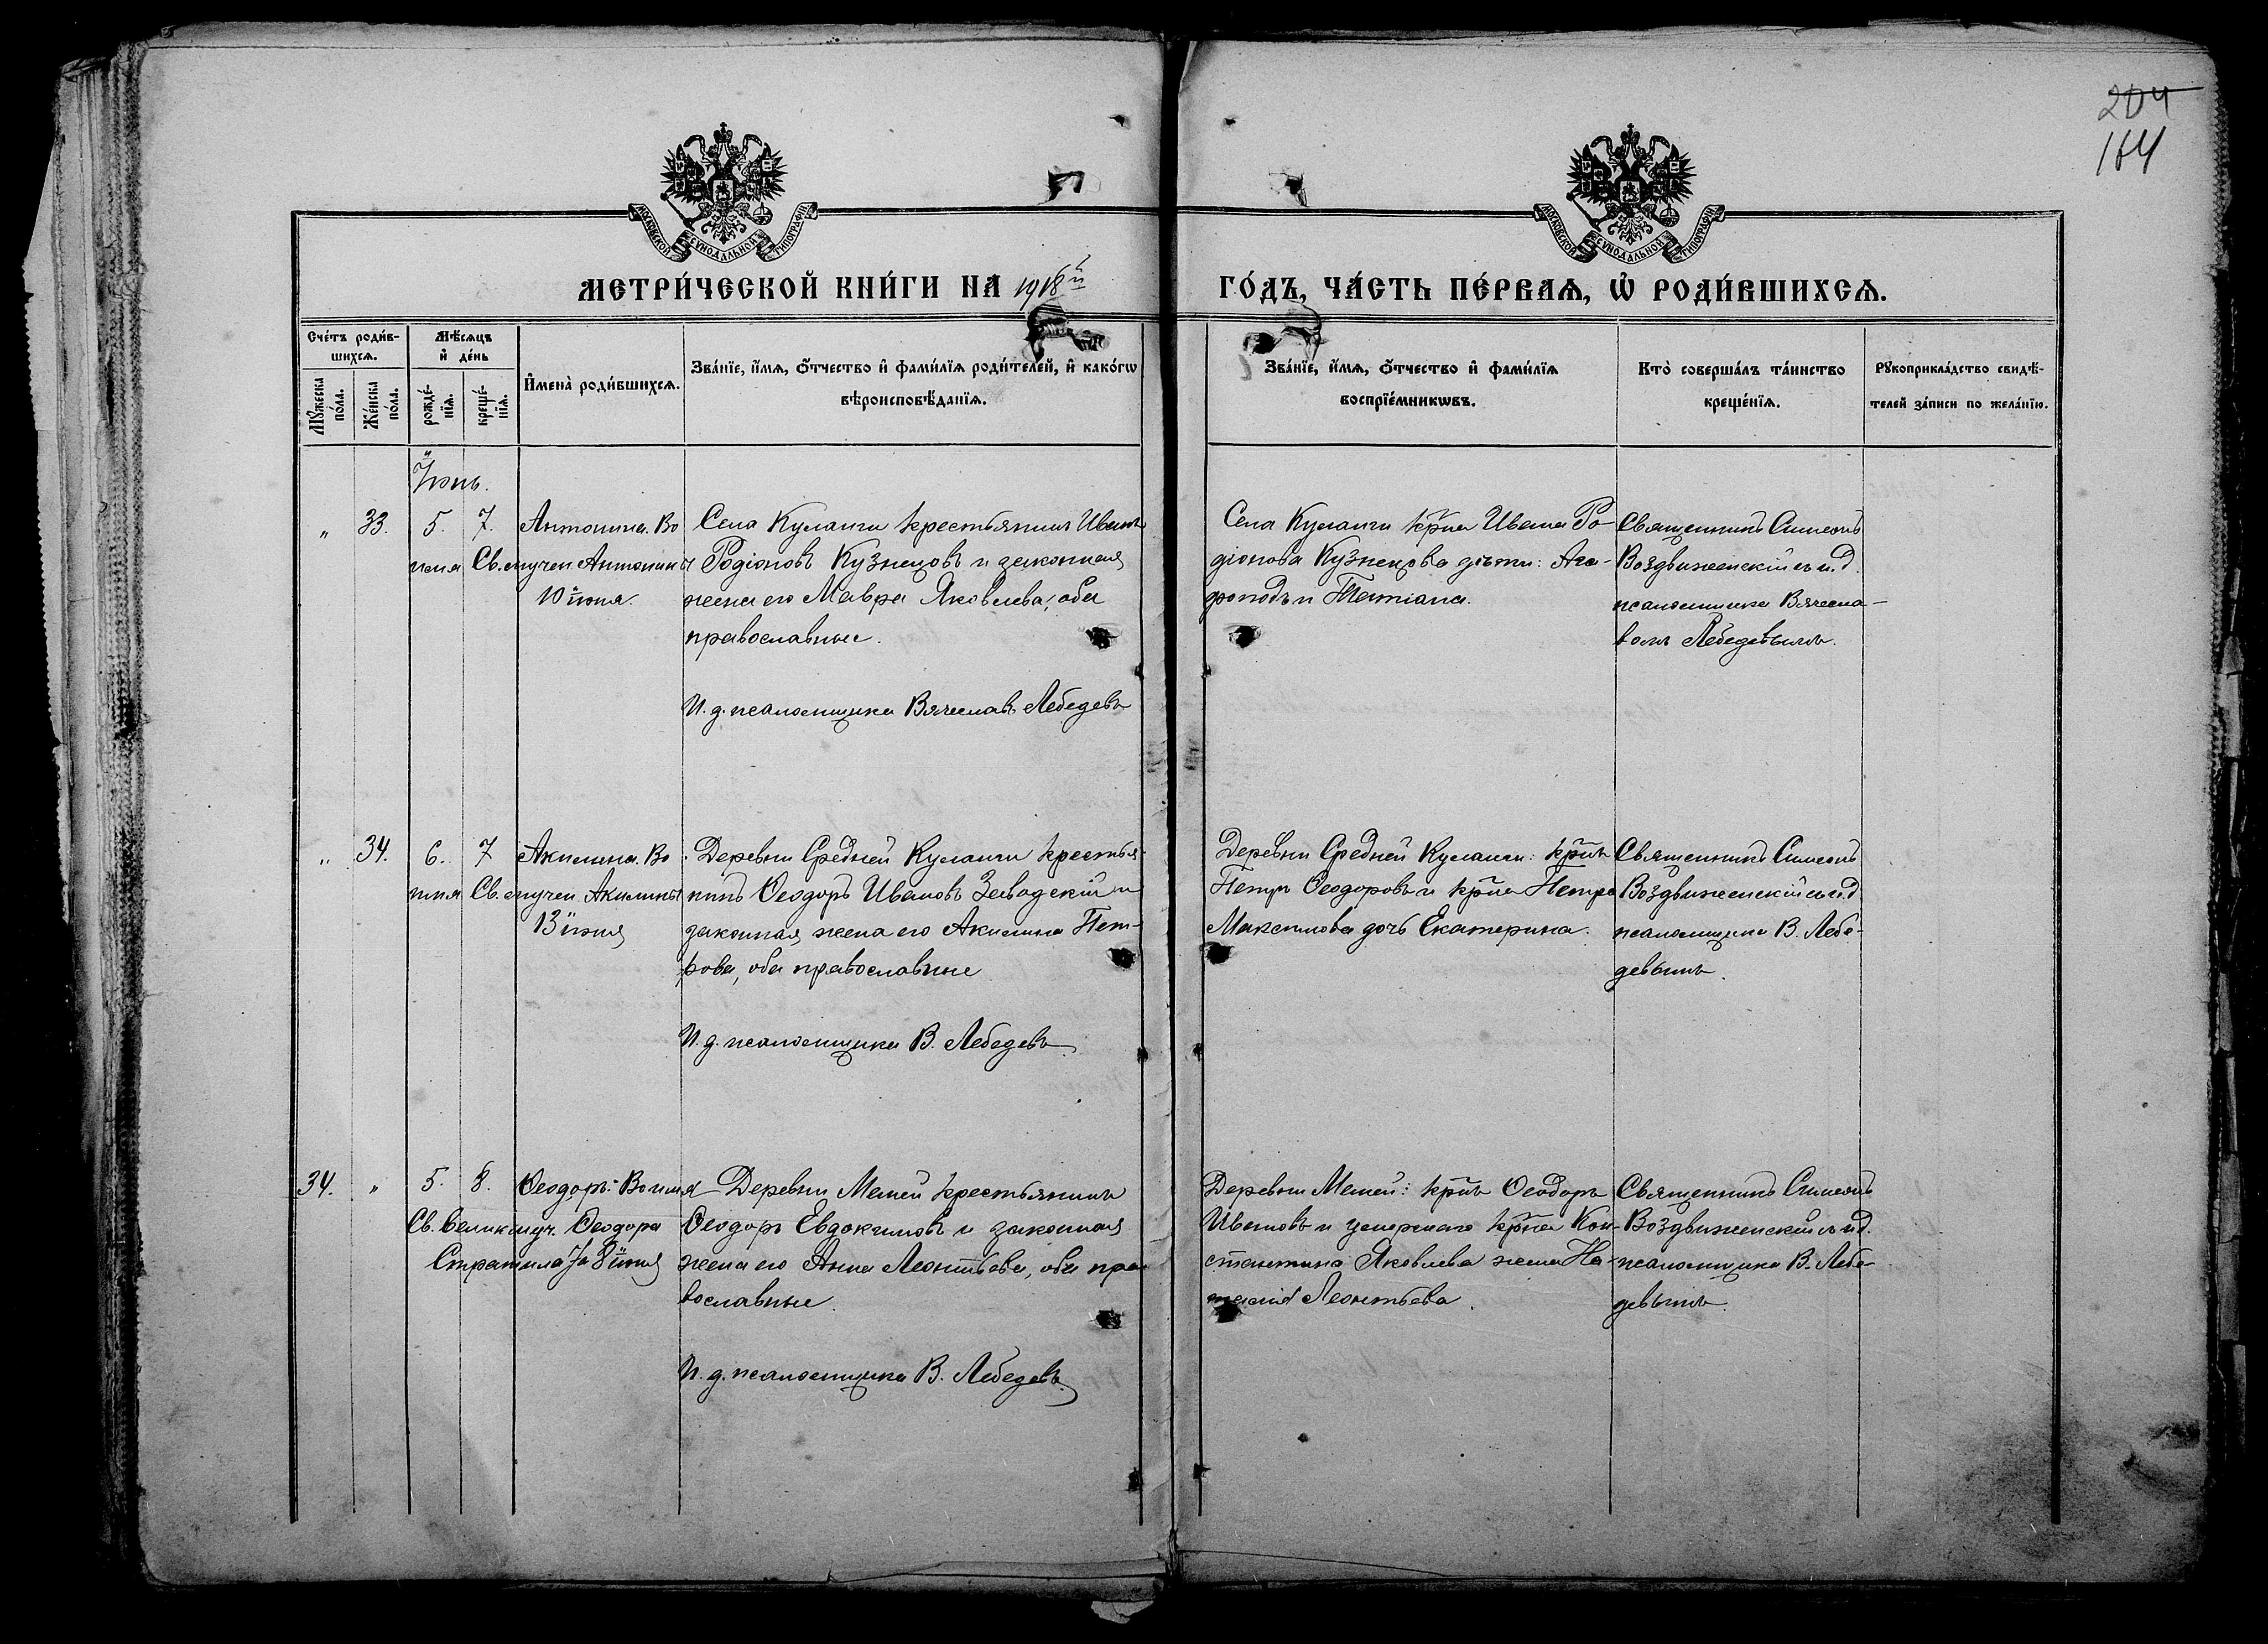 204
164
МОСКОВСКОЙ СѴНОДАЛЬНОЙ ТИПОГРАФІИ
МОСКОВСКОЙ СѴНОДАЛЬНОЙ ТИПОГРАФІИ
МЕТРИ́ЧЕСКОЙ КНИ́ГИ НА 1918й
ГО́ДЪ, ЧА́СТЬ ПЕ́РВАѦ, Ѡ҆ РОДИ́ВШИХСѦ.
Сче́тъ роди́в-
шихсѧ.
Мѣ́сяцъ
и҆ де́нь
Мꙋ́жеска
по́ла.
Же́нска
по́ла.
рожде́-
нїѧ.
креще́-
нїѧ.
И҆мена̀ роди́вшихсѧ.
Зва́нїе, и҆́мѧ, ѻ҆́тчество и҆ фами́лїѧ роди́телей, и҆ како́гѡ
вѣроисповѣ́данїѧ.
Зва́нїе, и҆́мѧ, ѻ҆́тчество и҆ фами́лїѧ
воспрїе́мникѡвъ.
Кто̀ соверша́лъ та́инство
креще́нїѧ.
Рꙋкоприкла́дство свидѣ́-
телей за́писи по жела́нїю.
Іюнь.
" 33. 5. 7. Антонина. Во
имя Св. мучен. Антонины
10 іюня.
Села Куланги крестьянинъ Иванъ
Родіоновъ Кузнецовъ и законная
жена его Мавра Яковлева, оба
православные.
И. д. псаломщика Вячеславъ Лебедевъ
Села Куланги кр̃на Ивана Ро-
діонова Кузнецова дѣти: Ага-
фоподъ и Татіана.
Священникъ Симеонъ
Воздвиженскій съ и. д.
псаломщика Вячесла-
вомъ Лебедевымъ.
" 34. 6. 7 Акилина. Во
имя Св. мучен. Акилины
13 іюня
Деревни Средней Куланги крестья-
нинъ Ѳеодоръ Ивановъ Завадскій и
законная жена его Акилина Пет-
рова, оба православные
И. д. псаломщика В. Лебедевъ
Деревни Средней Куланги: кр̃нъ
Петръ Ѳеодоровъ и кр̃на Петра
Максимова дочь Екатерина.
Священникъ Симеонъ
Воздвиженскій съ и. д.
псаломщика В. Лебе-
девымъ.
34. " 5. 8. Ѳеодоръ: Во имя
Св. великмуч. Ѳеодора
Стратилата 8 іюня
Деревни Мамей крестьянинъ
Ѳеодоръ Евдокимовъ и законная
жена его Анна Леонтьева, оба пра-
вославные.
И. д. псаломщика В. Лебедевъ.
Деревни Мамей: кр̃нъ Ѳеодоръ
Ивановъ и умершаго кр̃на Кон-
стантина Яковлева жена На-
талія Леонтьева.
Священникъ Симеонъ
Воздвиженскій съ и. д.
псаломщика В. Лебе-
девымъ.